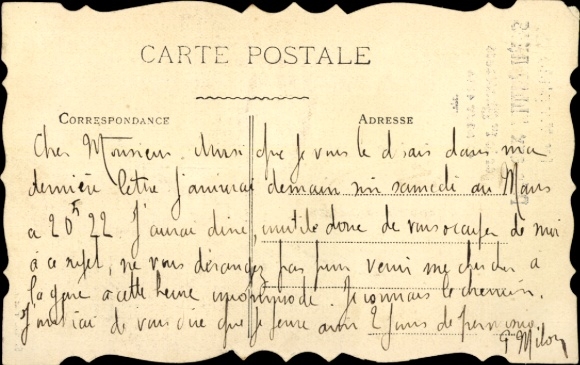 CARTE POSTALE
CORRESPONDANCE
ADRESSE
Cher Monsieur. Ainsi que je vous le disais dans ma
dernière lettre j'arriverai demain soir samedi au Mans
à 20h 22 J'aurai diné, inutile donc de vous occuper de moi
à ce sujet, ne vous dérangez pas pour venir me chercher à
la gare à cette heure incommode. Je connais le chemin.
J'oubliai de vous dire que je aurai 2 jours de permission
P. Milon